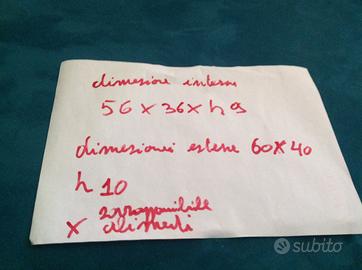 dimesione interne
56 x 36 x h 9
dimesionei esterne 60 x 40
h 10
sovrapponibile
x alimenti
subito